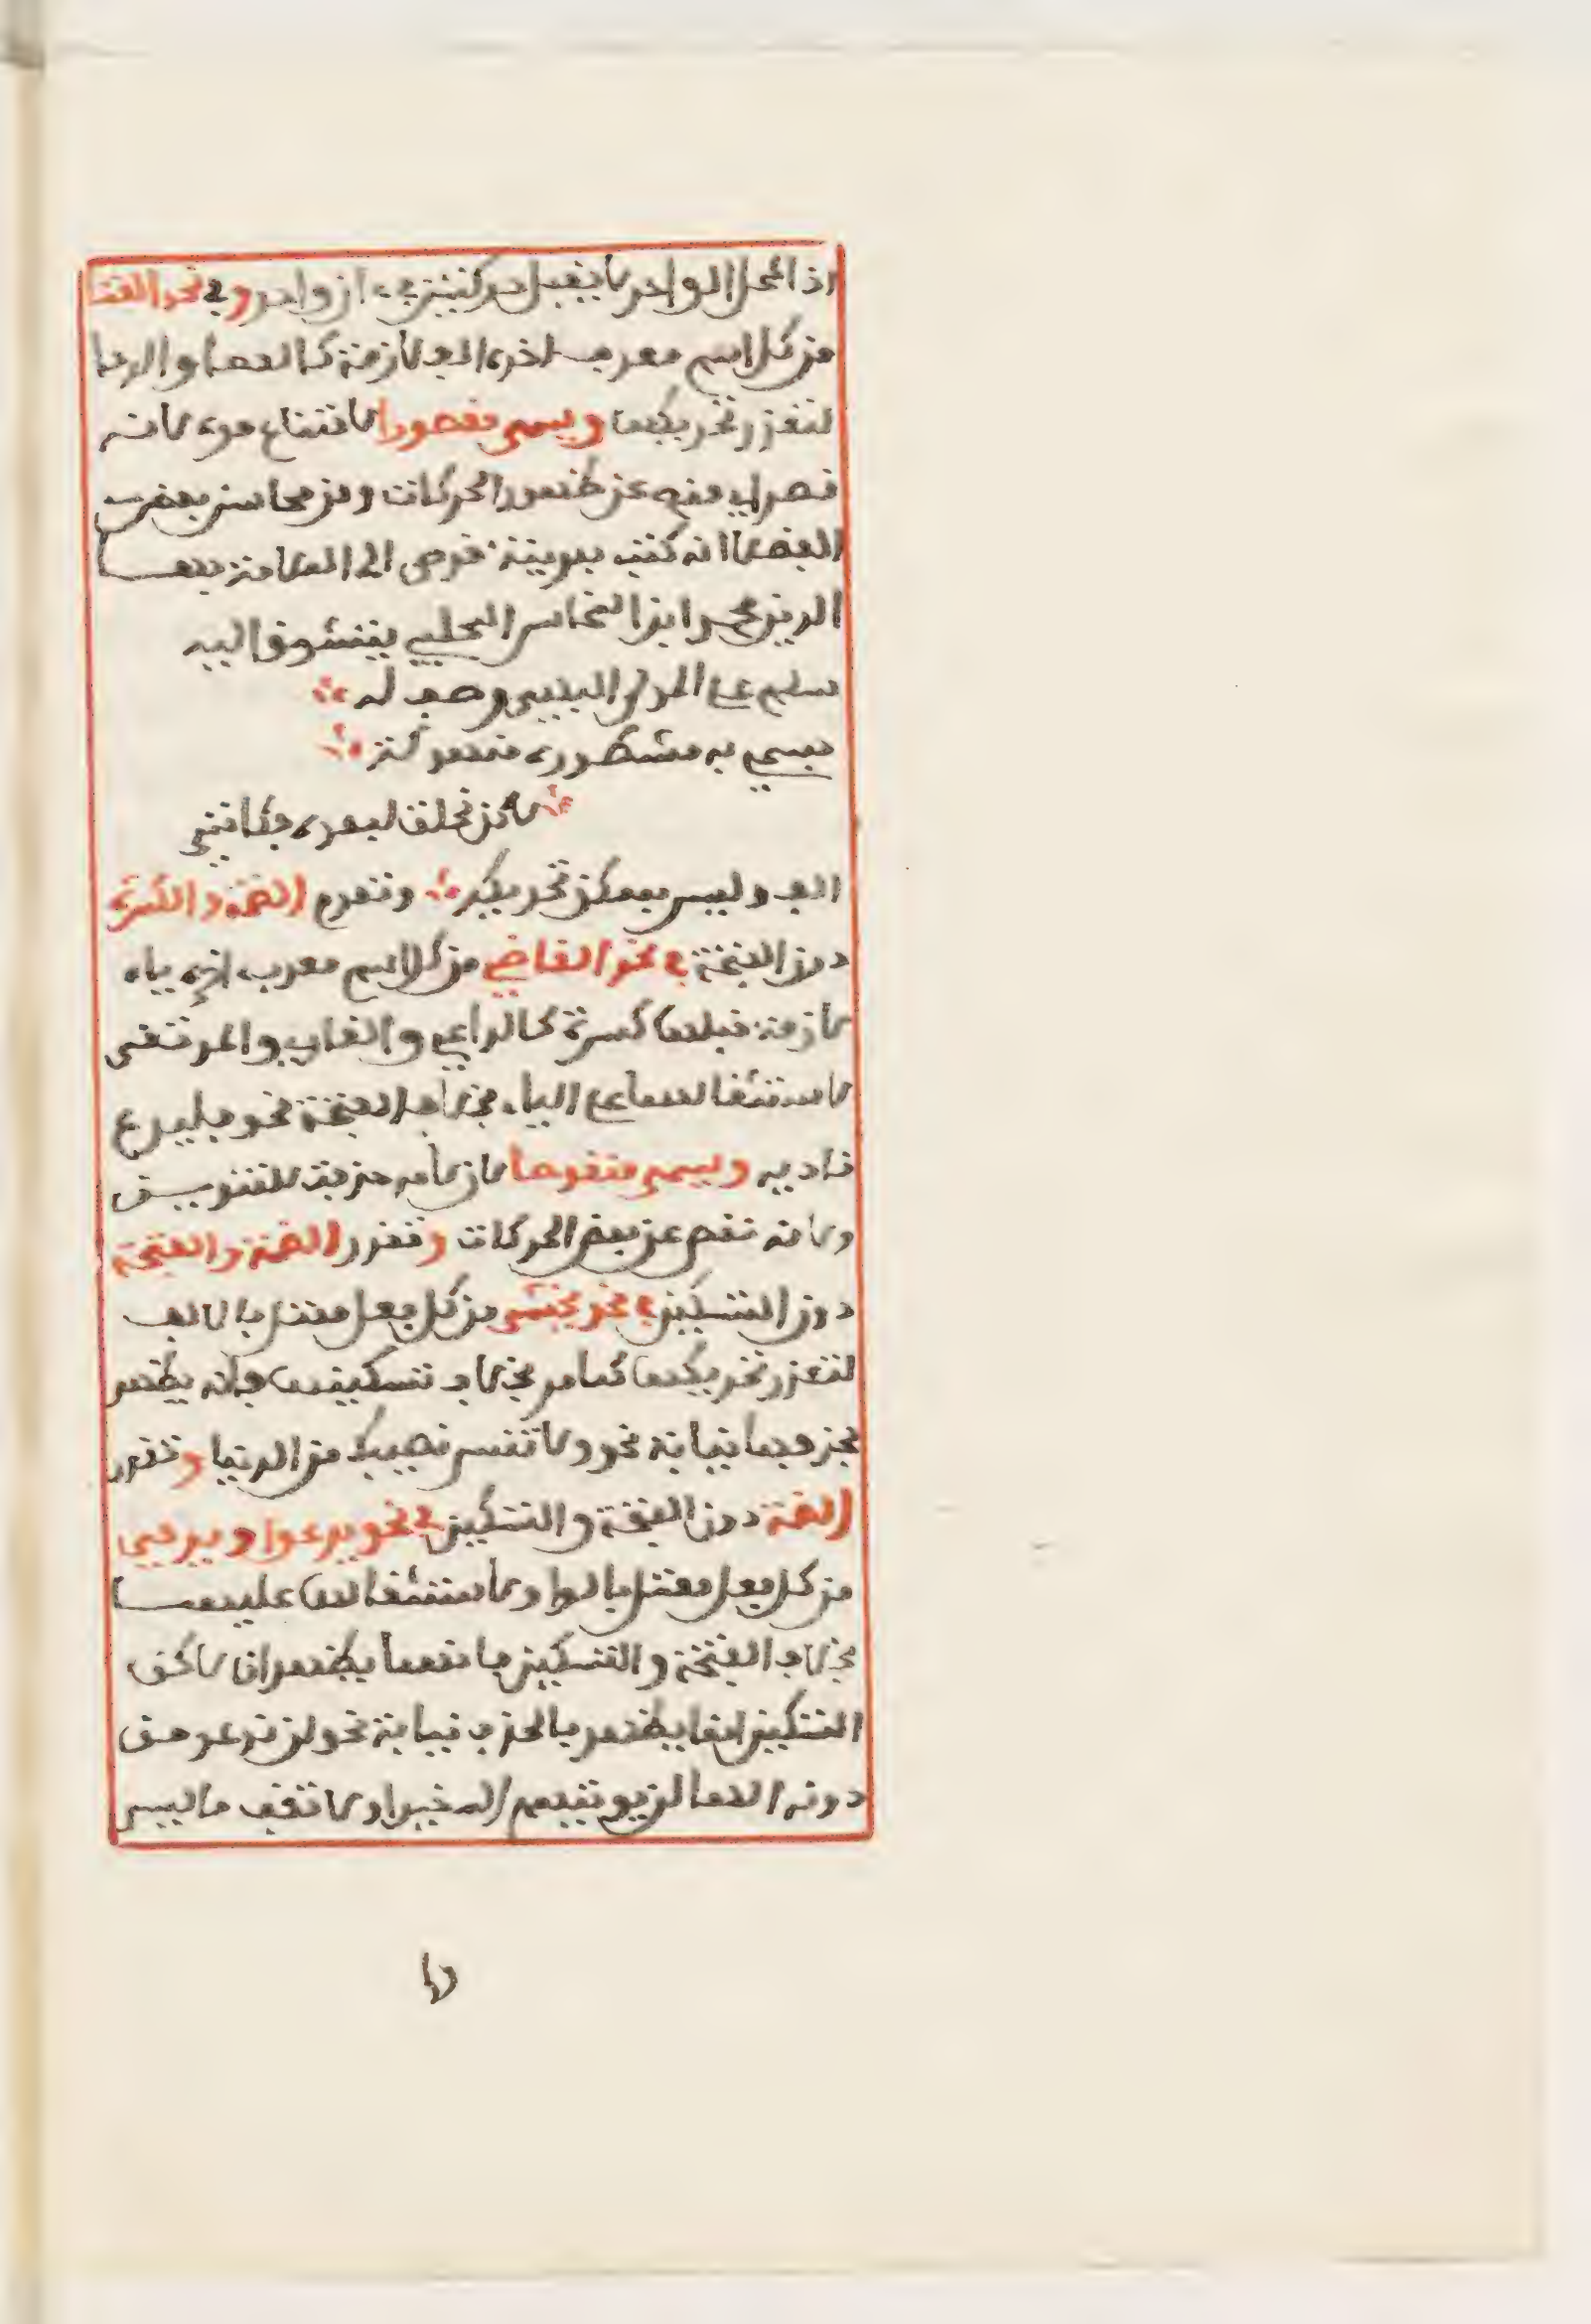 اذ المحل الواحد لا يقبل حركتين في ان واحد وفي نحو الفتا
من كل اسم معرب اخره الف لازمة كالعصا والرحا
لتعذر تحريكها ويسمى مقصورا لامتناع مده لانه
قصر اي منع عن ظهور الحركات ومن محاسن بعض
الفضلاء انه كتب بمدينة قوص الى العلامة بهــا
الدين محمد ابن النحاس الحلبي يتشوق اليه
سلم على المولى البهي وصف له
شوقي اليه
ابدا يحركني اليه تشوقي
جسمي به مشطوره منهوكه
لاكن نحلت لبعده فكانني
الف وليس بممكن تحريكه وتقدر الضمة والكسرة
دون الفتحة في نحو القاضي من كل اسم معرب اخره ياء
لازمة قبلها كسرة كالداعي والغازي والمرتقى
لاستثقالهما على الياء بخلاف الفتحة نحو فليدع
ناديه ويسمى منقوصا لان لامه حذفت للتنويـن
ولانه نقص عن بعض الحركات وتقدر الضمة والفتحة
دون التسكين في نحو يخشى من كل فعل معتل بالالف
لتعذر تحريكها كما مر بخلاف تسكينها فانه يظهر
بحذفها نيابة نحو ولا تنس نصيبك من الدنيا وتقدر
الضمة دون الفتحة والتسكين في نحو يدعوا ويرمي
من كل فعل معتل بالواو لاستثقالها عليهمــا
بخلاف الفتحة والتسكين فانهما يظهران لاكن
التسكين انما يظهر بالحذف نيابة نحو لن ندعو من
دونه الها لن يوتيهم الله خيرا ولا تقف ما ليس